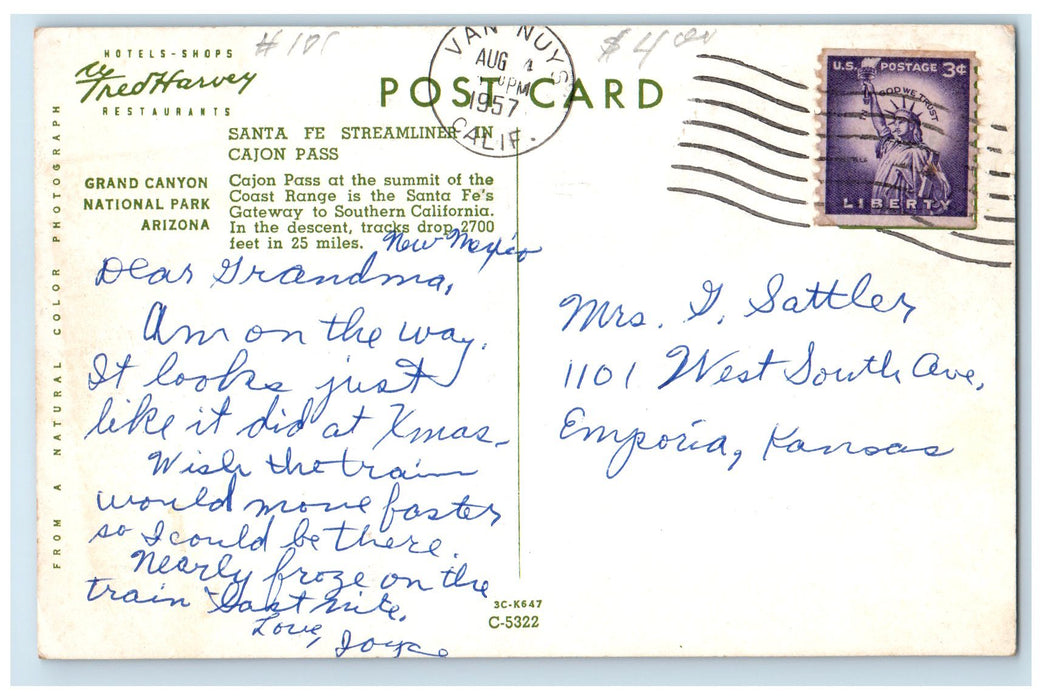 #101
$4.00
HOTELS-SHOPS
by Fred Harvey
RESTAURANTS
POST CARD
VAN NUYS
AUG 4
PM
1957
CALIF.
U.S. POSTAGE 3¢
IN GOD WE TRUST
LIBERTY
SANTA FE STREAMLINER IN
CAJON PASS
GRAND CANYON
NATIONAL PARK
ARIZONA
Cajon Pass at the summit of the
Coast Range is the Santa Fe's
Gateway to Southern California.
In the descent, tracks drop 2700
feet in 25 miles.
FROM A NATURAL COLOR PHOTOGRAPH
New Mexico
Dear Grandma,
Am on the way.
It looks just
like it did at Xmas.
Wish the train
would move faster
so I could be there.
Nearly froze on the
train last nite.
Love, Joyce
Mrs. G. Sattler
1101 West South Ave,
Emporia, Kansas
3C-K647
C-5322